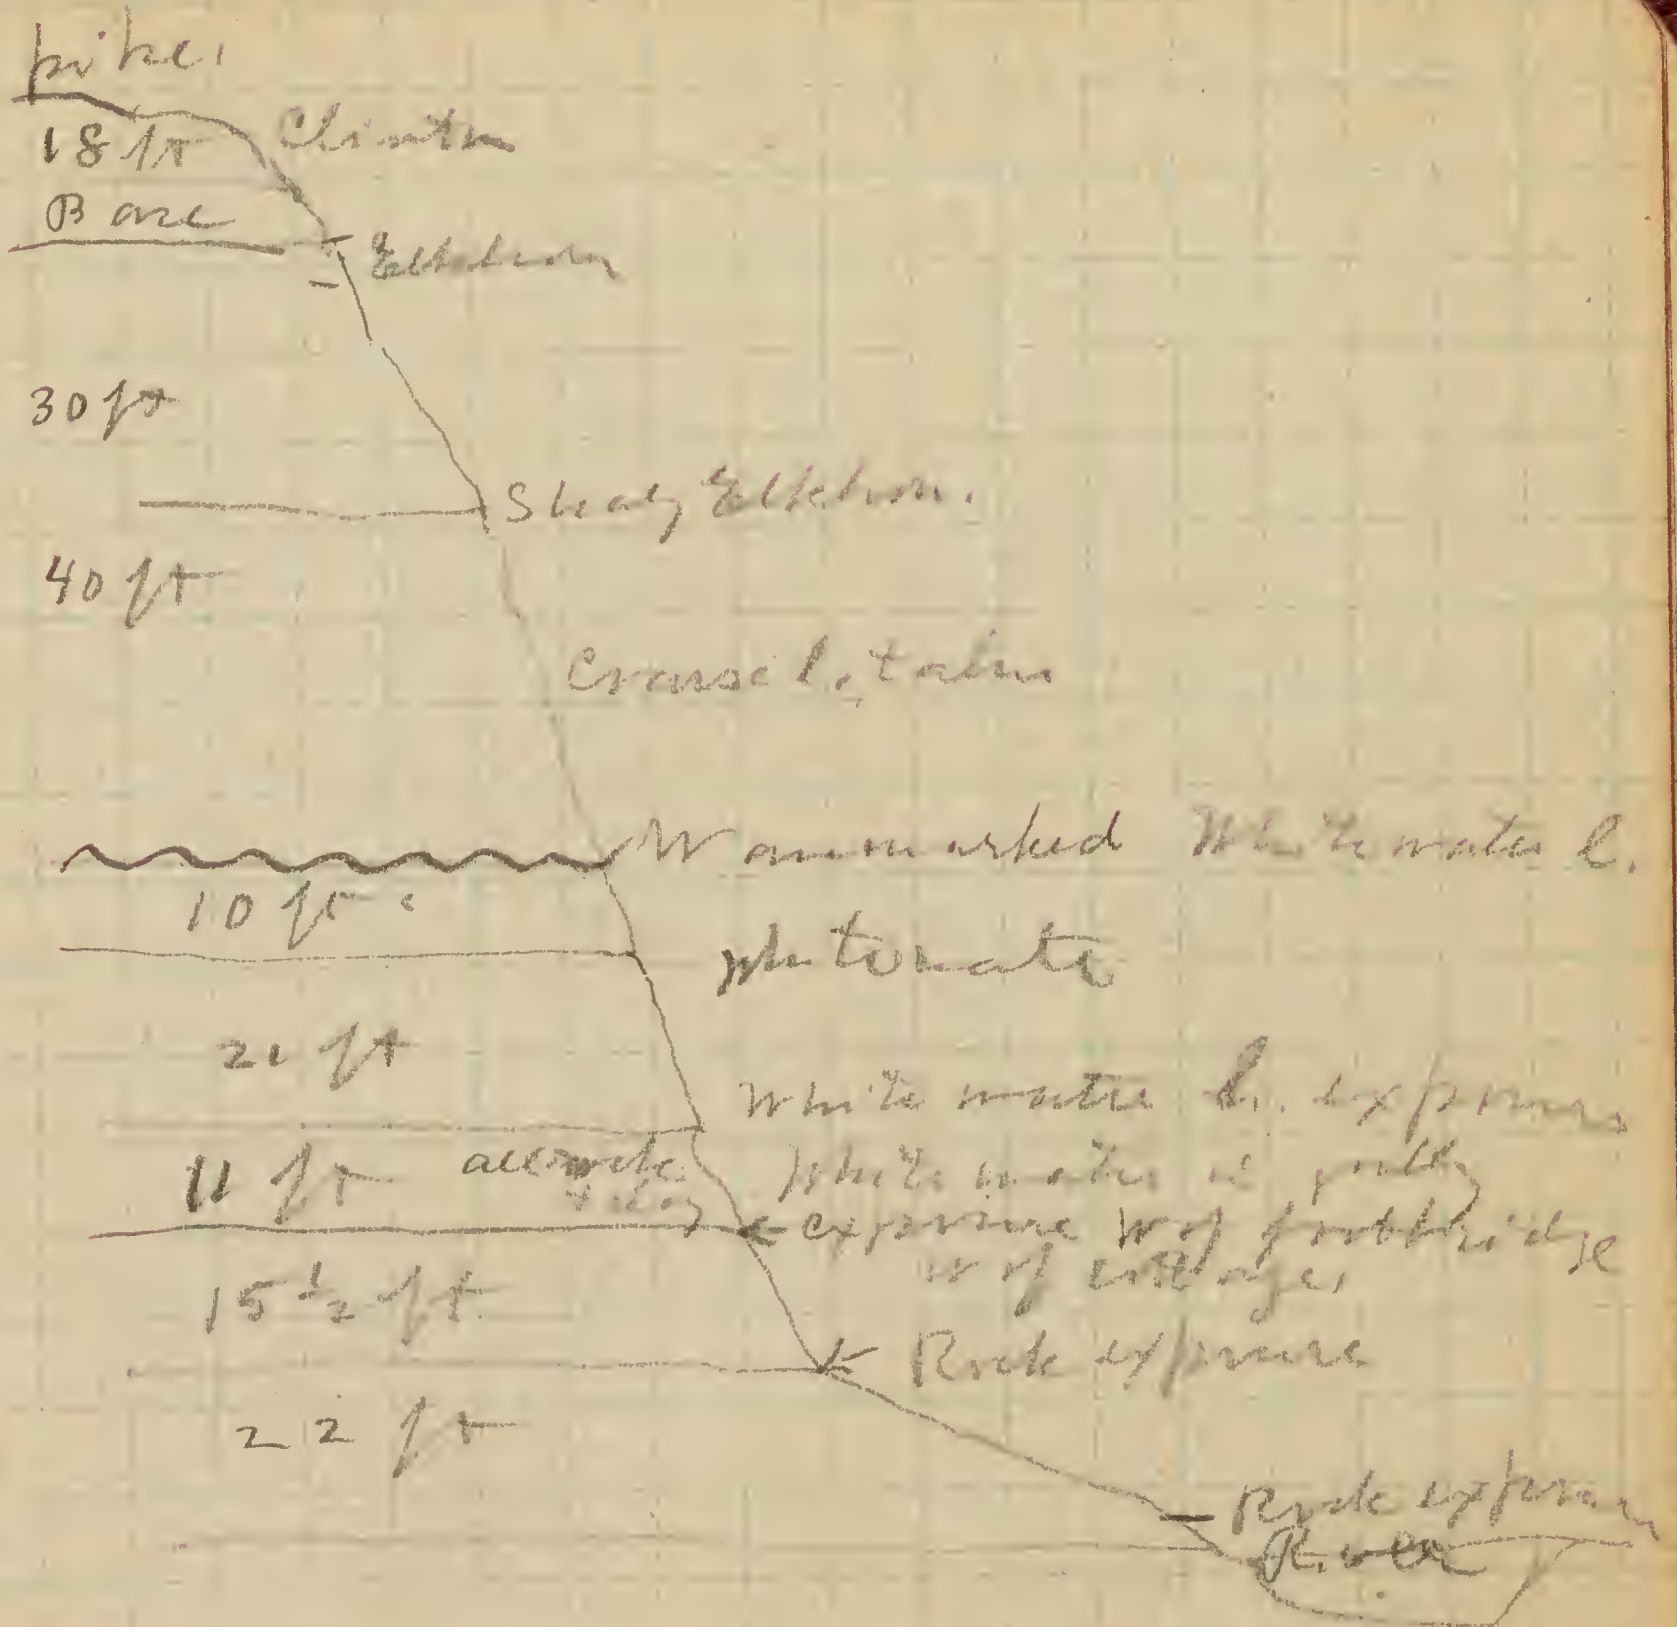 pike.
18 ft Clinton
Base
Elkhorn
30 ft
Shaly Elkhorn.
40 ft
Wavemarked Whitewater l.
10 ft.
Whitewater
21 ft
Whitewater l. exposure
11 ft accurate Whitewater
exposure W of footbridge
W of cottage.
15 1/2 ft
Rock exposure
22 ft
Rock exposure
River